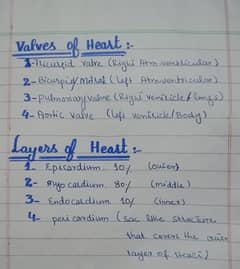 Valves of Heart :-
1- Tricuspid Valve (Right Atroventricular)
2- Bicuspid/Mitral (left Atroventricular)
3- Pulmonary valve (Right ventricle/lungs)
4- Aortic valve (left ventricle/Body)
Layers of Heart :-
1- Epicardium 10% (outer)
2- Myocardium 80% (middle)
3- Endocardium 10% (inner)
4- pericardium (Sac like structure
that covers the outer
layer of Heart)